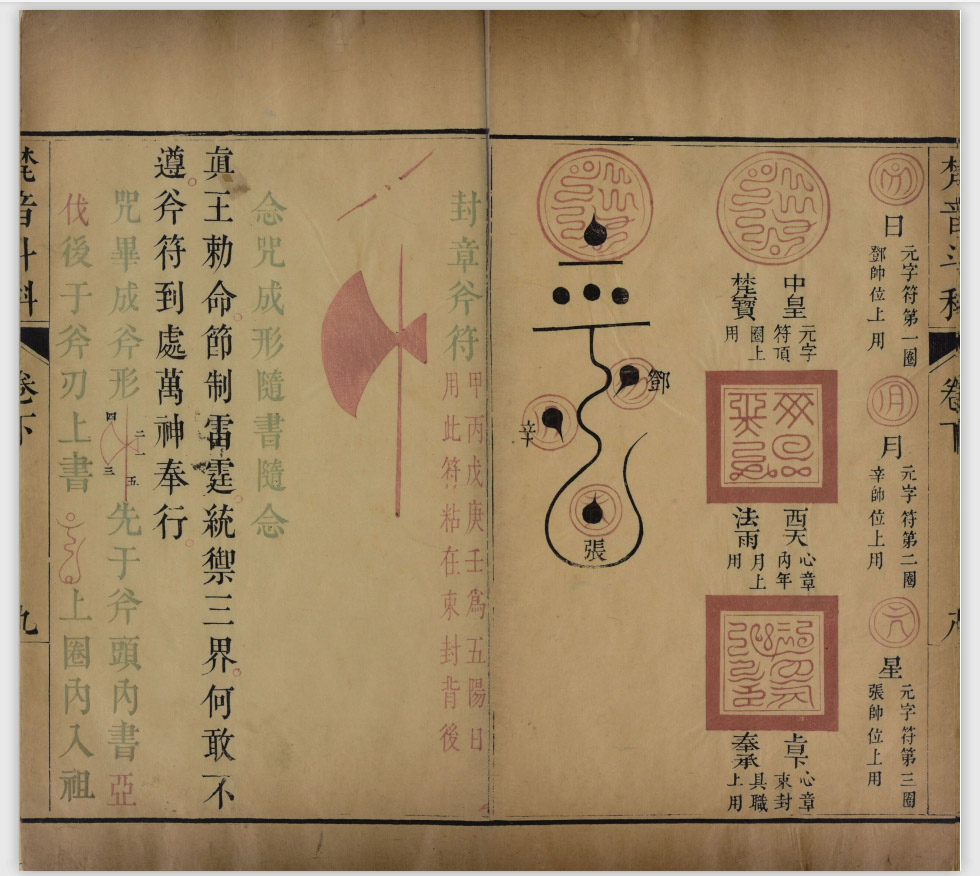 日
元字符第一圈
鄧帥位上用
月
元字符第二圈
辛帥位上用
星
元字符第三圈
張帥位上用
中皇
梵寶
元字
符頂
圈上
用
西天
法雨
心章
內年
月上
用
奉承
心章
束封
具職
上用
鄧
辛
張
封章斧符
甲丙戊庚壬爲五陽日
用此符粘在束封背後
念咒成形隨書隨念
眞王勅命節制雷霆統禦三界何敢不
遵斧符到處萬神奉行
咒畢成斧形
四
三
二
一
五
先于斧頭內書亞
伐後于斧刃上書
上圈內入祖
梵音斗科
卷下
九
梵音斗科
卷下